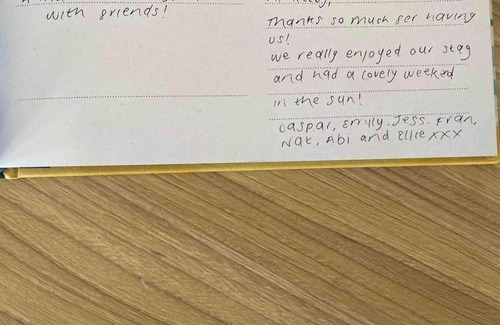 with friends!
Thanks so much for having
us!
we really enjoyed our stay
and had a lovely weekend
in the sun!
Caspar, Emily, Jess, Fran,
Nat, Abi and Ellie xxx